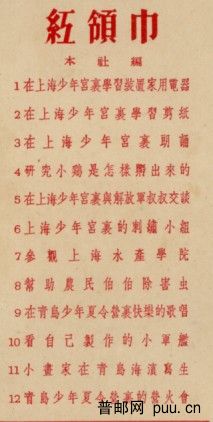 紅領巾
本社編
1 在上海少年宮裏學習裝置家用電器
2 在上海少年宮裏學習剪紙
3 在上海少年宮裏朗誦
4 研究小鷄是怎樣孵出來的
5 在上海少年宮裏與解放軍叔叔交談
6 上海少年宮裏的刺繡小組
7 參觀上海水產學院
8 幫助農民伯伯除害虫
9 在青島少年夏令營裏快樂的歌唱
10 看自己製作的小軍艦
11 小畫家在青島海濱寫生
12 青島少年夏令營裏的營火會
普邮网 puu.cn